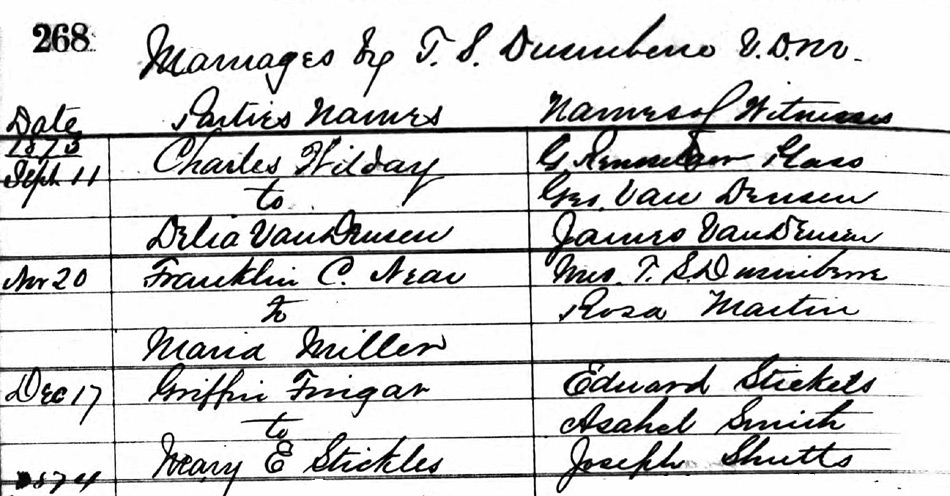 268
Marriages by T. S. Dusinberre V.D.M.
Date Parties Names Names of Witnesses
1873
Sept 11 Charles Wilday G. Rensselaer Glass
to Geo. Van Deusen
Delia Van Deusen James Van Deusen
Nov 20 Franklin C. Near Mrs. T. S. Dusinberre
to Rosa Martin
Maria Miller
Dec 17 Griffin Fingar Edward Stickels
to Asahel Smith
Mary E Stickles Joseph Shutts
1874